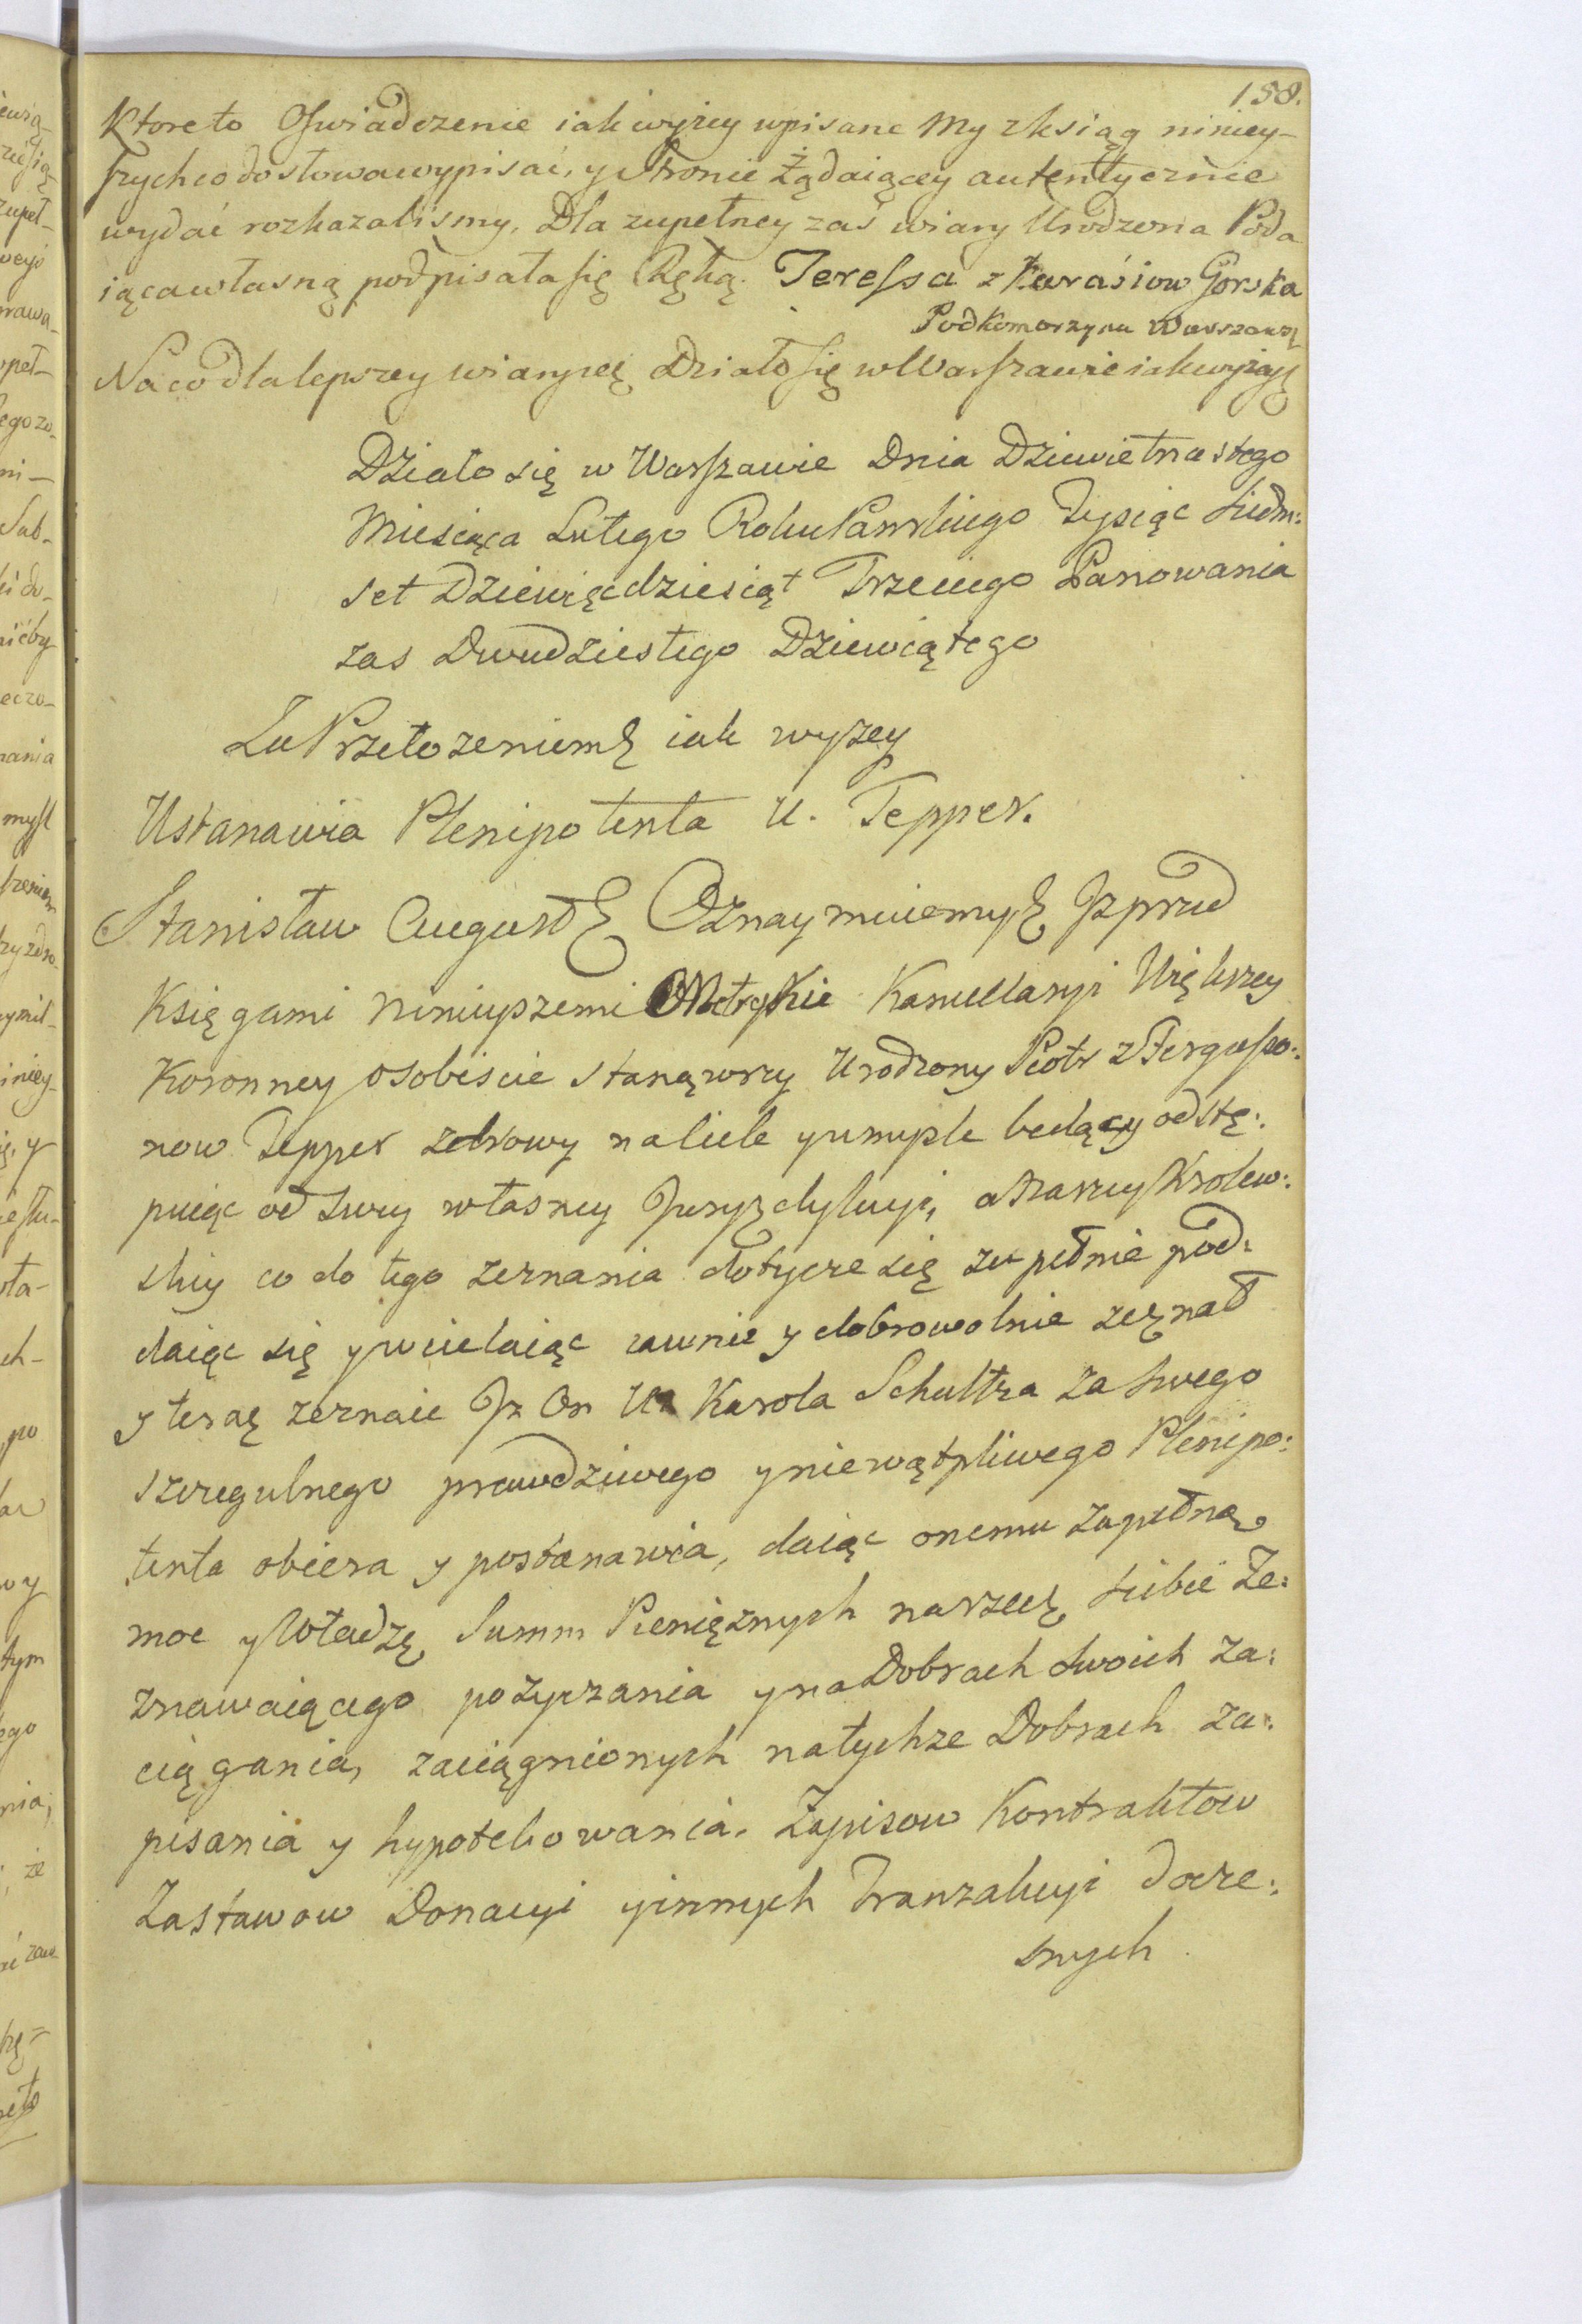 158.
Ktore to Oswiadczenie iak wyżey wpisane My z ksiąg niniey-
szych co do słowa wypisać, y Stronie Żądaiącey autentycznie
wydać rozkazalismy. Dla zupełney zaś wiary Urodzona Poda
iąca własną podpisała się Ręką. Teressa z Karaśiow Gorska
Podkomorzyna Warszaws
Na co dla lepszey wiary rcę Działo się w Warszawie iak wyżey
Działo się w Warszawie Dnia Dziewietnastego
Miesiąca Lutego Roku Panskiego Tysiąc Siedm:
set Dziewięcdziesiąt Trzeciego Panowania
zas Dwudziestego Dziewiątego
Za Przełozeniem iak wyzey
Ustanawia Plenipotenta U. Tepper.
Stanisław August Oznaymuiemy Iz przed
Księgami Ninieyszemi Metryki Kancellaryi Więkrzey
Koronney osobiscie stanąwszy Urodzony Piotr z Ferguso:
now Tepper zdrowy na ciele y umysle będący odstę:
puiąc od swey własney Juryzdykcyi, a Naszey Krolew:
skiey co do tego zeznania dotycze się zupełnie pod:
daiąc się y wcielaiąc iawnie y dobrowolnie zeznał
y teraz zeznaie Iz On U. Karola Schultza za swego
szczegulnego prawdziwego y niewątpliwego Plenipo:
tenta obiera y postanawia, daiąc onemu zupełną
moc y Władzę Summ Pieniężnych na rzecz siebie Ze:
znawaiącego pożyczania y na Dobrach swoich za:
ciągania, zaciągnionych na tychze Dobrach za:
pisania y hypotekowania. Zapisow Kontraktow
Zastawow Donacyi y innych Tranzakcyi docze:
snych